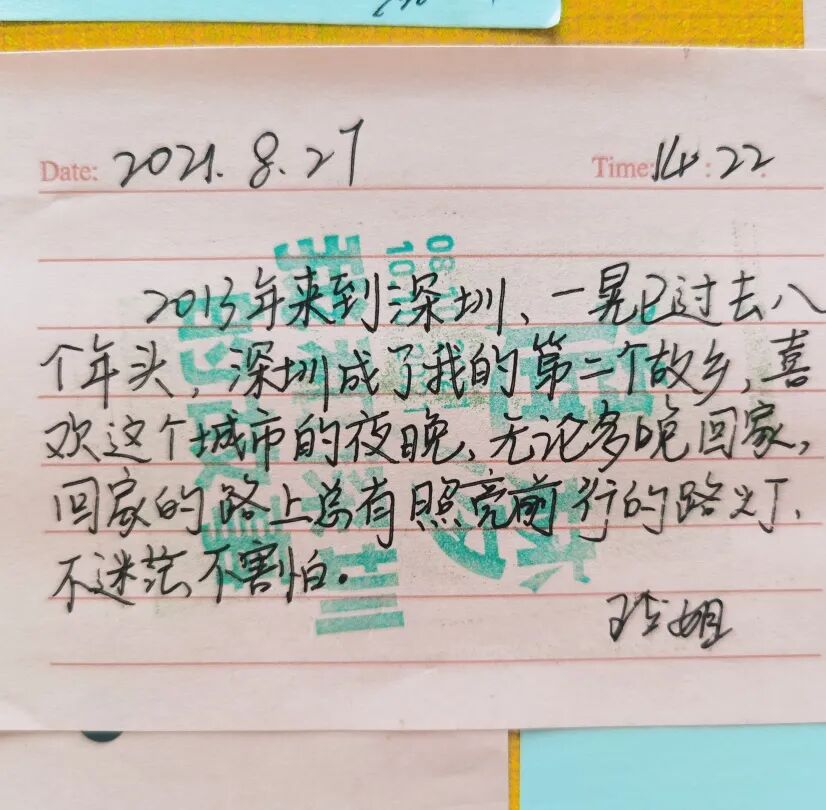 Date: 2021.8.27 Time: 14:22
2013年来到深圳、一晃已过去八
个年头，深圳成了我的第二个故乡，喜
欢这个城市的夜晚、无论多晚回家，
回家的路上总有照亮前行的路灯、
不迷茫不害怕。
姐